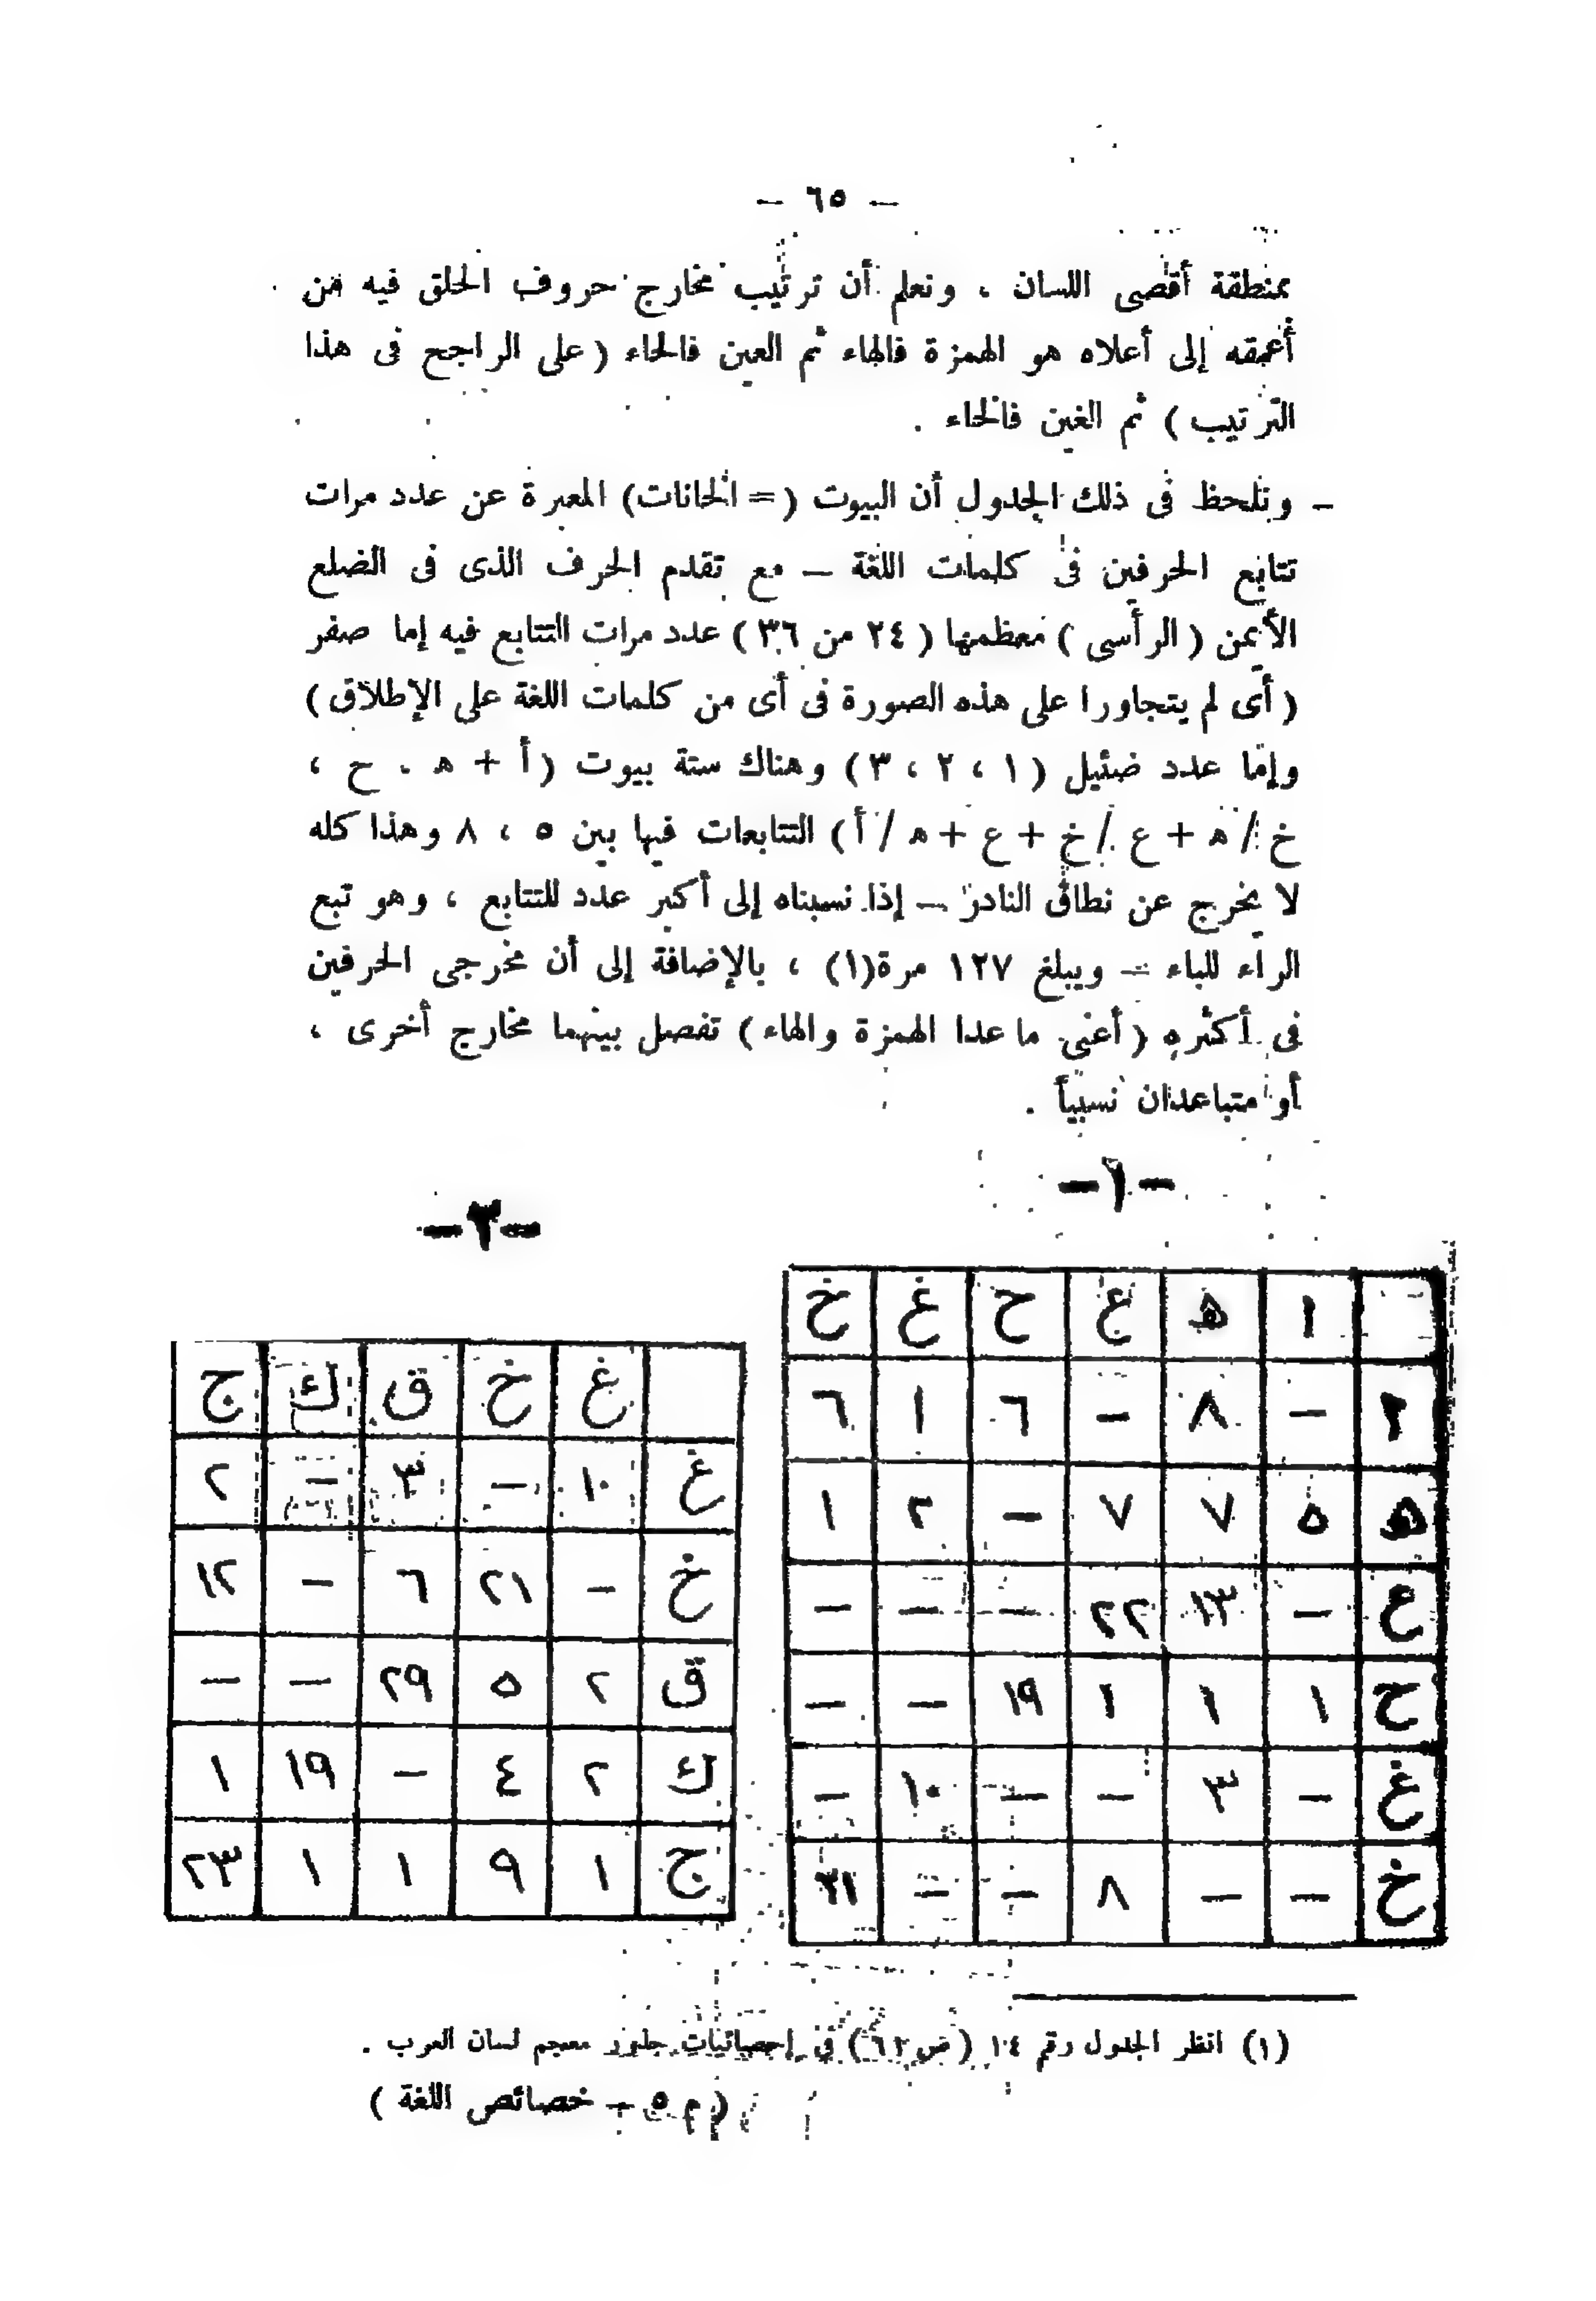 — ٦٥ —
بمنطقة أقصى اللسان ، ونعلم أن ترتيب مخارج حروف الحلق فيه من
أعمقه إلى أعلاه هو الهمزة فالهاء ثم العين فالحاء ( على الراجح فى هذا
الترتيب ) ثم الغين فالخاء .
— ونلحظ فى ذلك الجدول أن البيوت (= الخانات) المعبرة عن عدد مرات
تتابع الحرفين فى كلمات اللغة — مع تقدم الحرف الذى فى الضلع
الأيمن ( الرأسى ) معظمها ( ٢٤ من ٣٦ ) عدد مرات التتابع فيه إما صفر
( أى لم يتجاورا على هذه الصورة فى أى من كلمات اللغة على الإطلاق )
وإما عدد ضئيل ( ١ ، ٢ ، ٣ ) وهناك ستة بيوت ( أ + ه . ح ،
خ / ه + ع / خ + ع + ه / أ ) التتابعات فيها بين ٥ ، ٨ وهذا كله
لا يخرج عن نطاق النادر — إذا نسبناه إلى أكبر عدد للتتابع ، وهو تبع
الراء للباء — ويبلغ ١٢٧ مرة(١) ، بالإضافة إلى أن مخرجى الحرفين
فى أكثره ( أعنى ما عدا الهمزة والهاء ) تفصل بينهما مخارج أخرى ،
أو متباعدان نسبياً .
-١-
ا ه ع ح غ خ
— ٨ — ٦ ١ ٦
ه ٥ ٧ ٧ — ٢ ١
ع — ١٣ ٢٢ — — —
ح ١ ١ ١ ١٩ — —
غ — ٣ — — ١٠ —
خ — — ٨ — —
-٣-
غ خ ق ك ج
غ ١٠ — ٣ — ٢
خ — ٢١ ٦ — ١٢
ق ٢ ٥ ٢٩ — —
ك ٢ ٤ — ١٩ ١
ج ١ ٩ ١ ١ ٢٣
(١) انظر الجدول رقم ١٤ ( ص ) فى إحصائيات جذور معجم لسان العرب .
( م ٥ — خصائص اللغة )